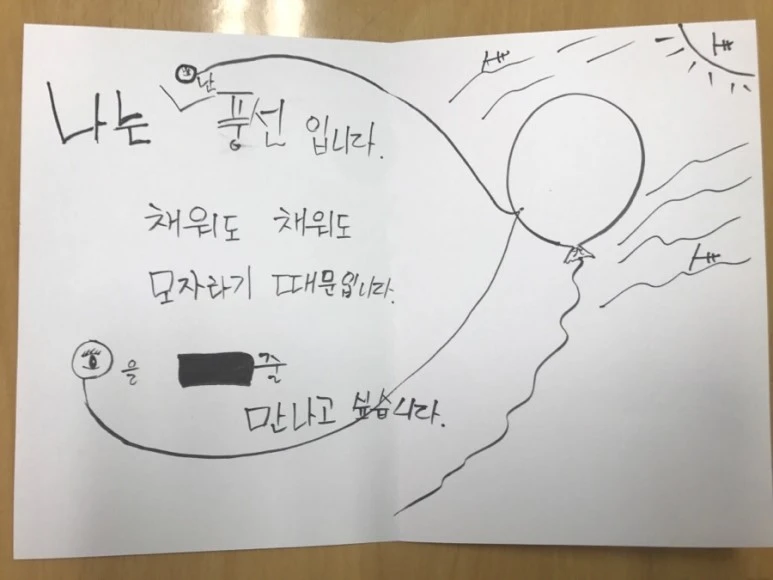 나는 난 풍선 입니다.
채워도 채워도
모자라기 때문입니다.
을 줄
만나고 싶습니다.